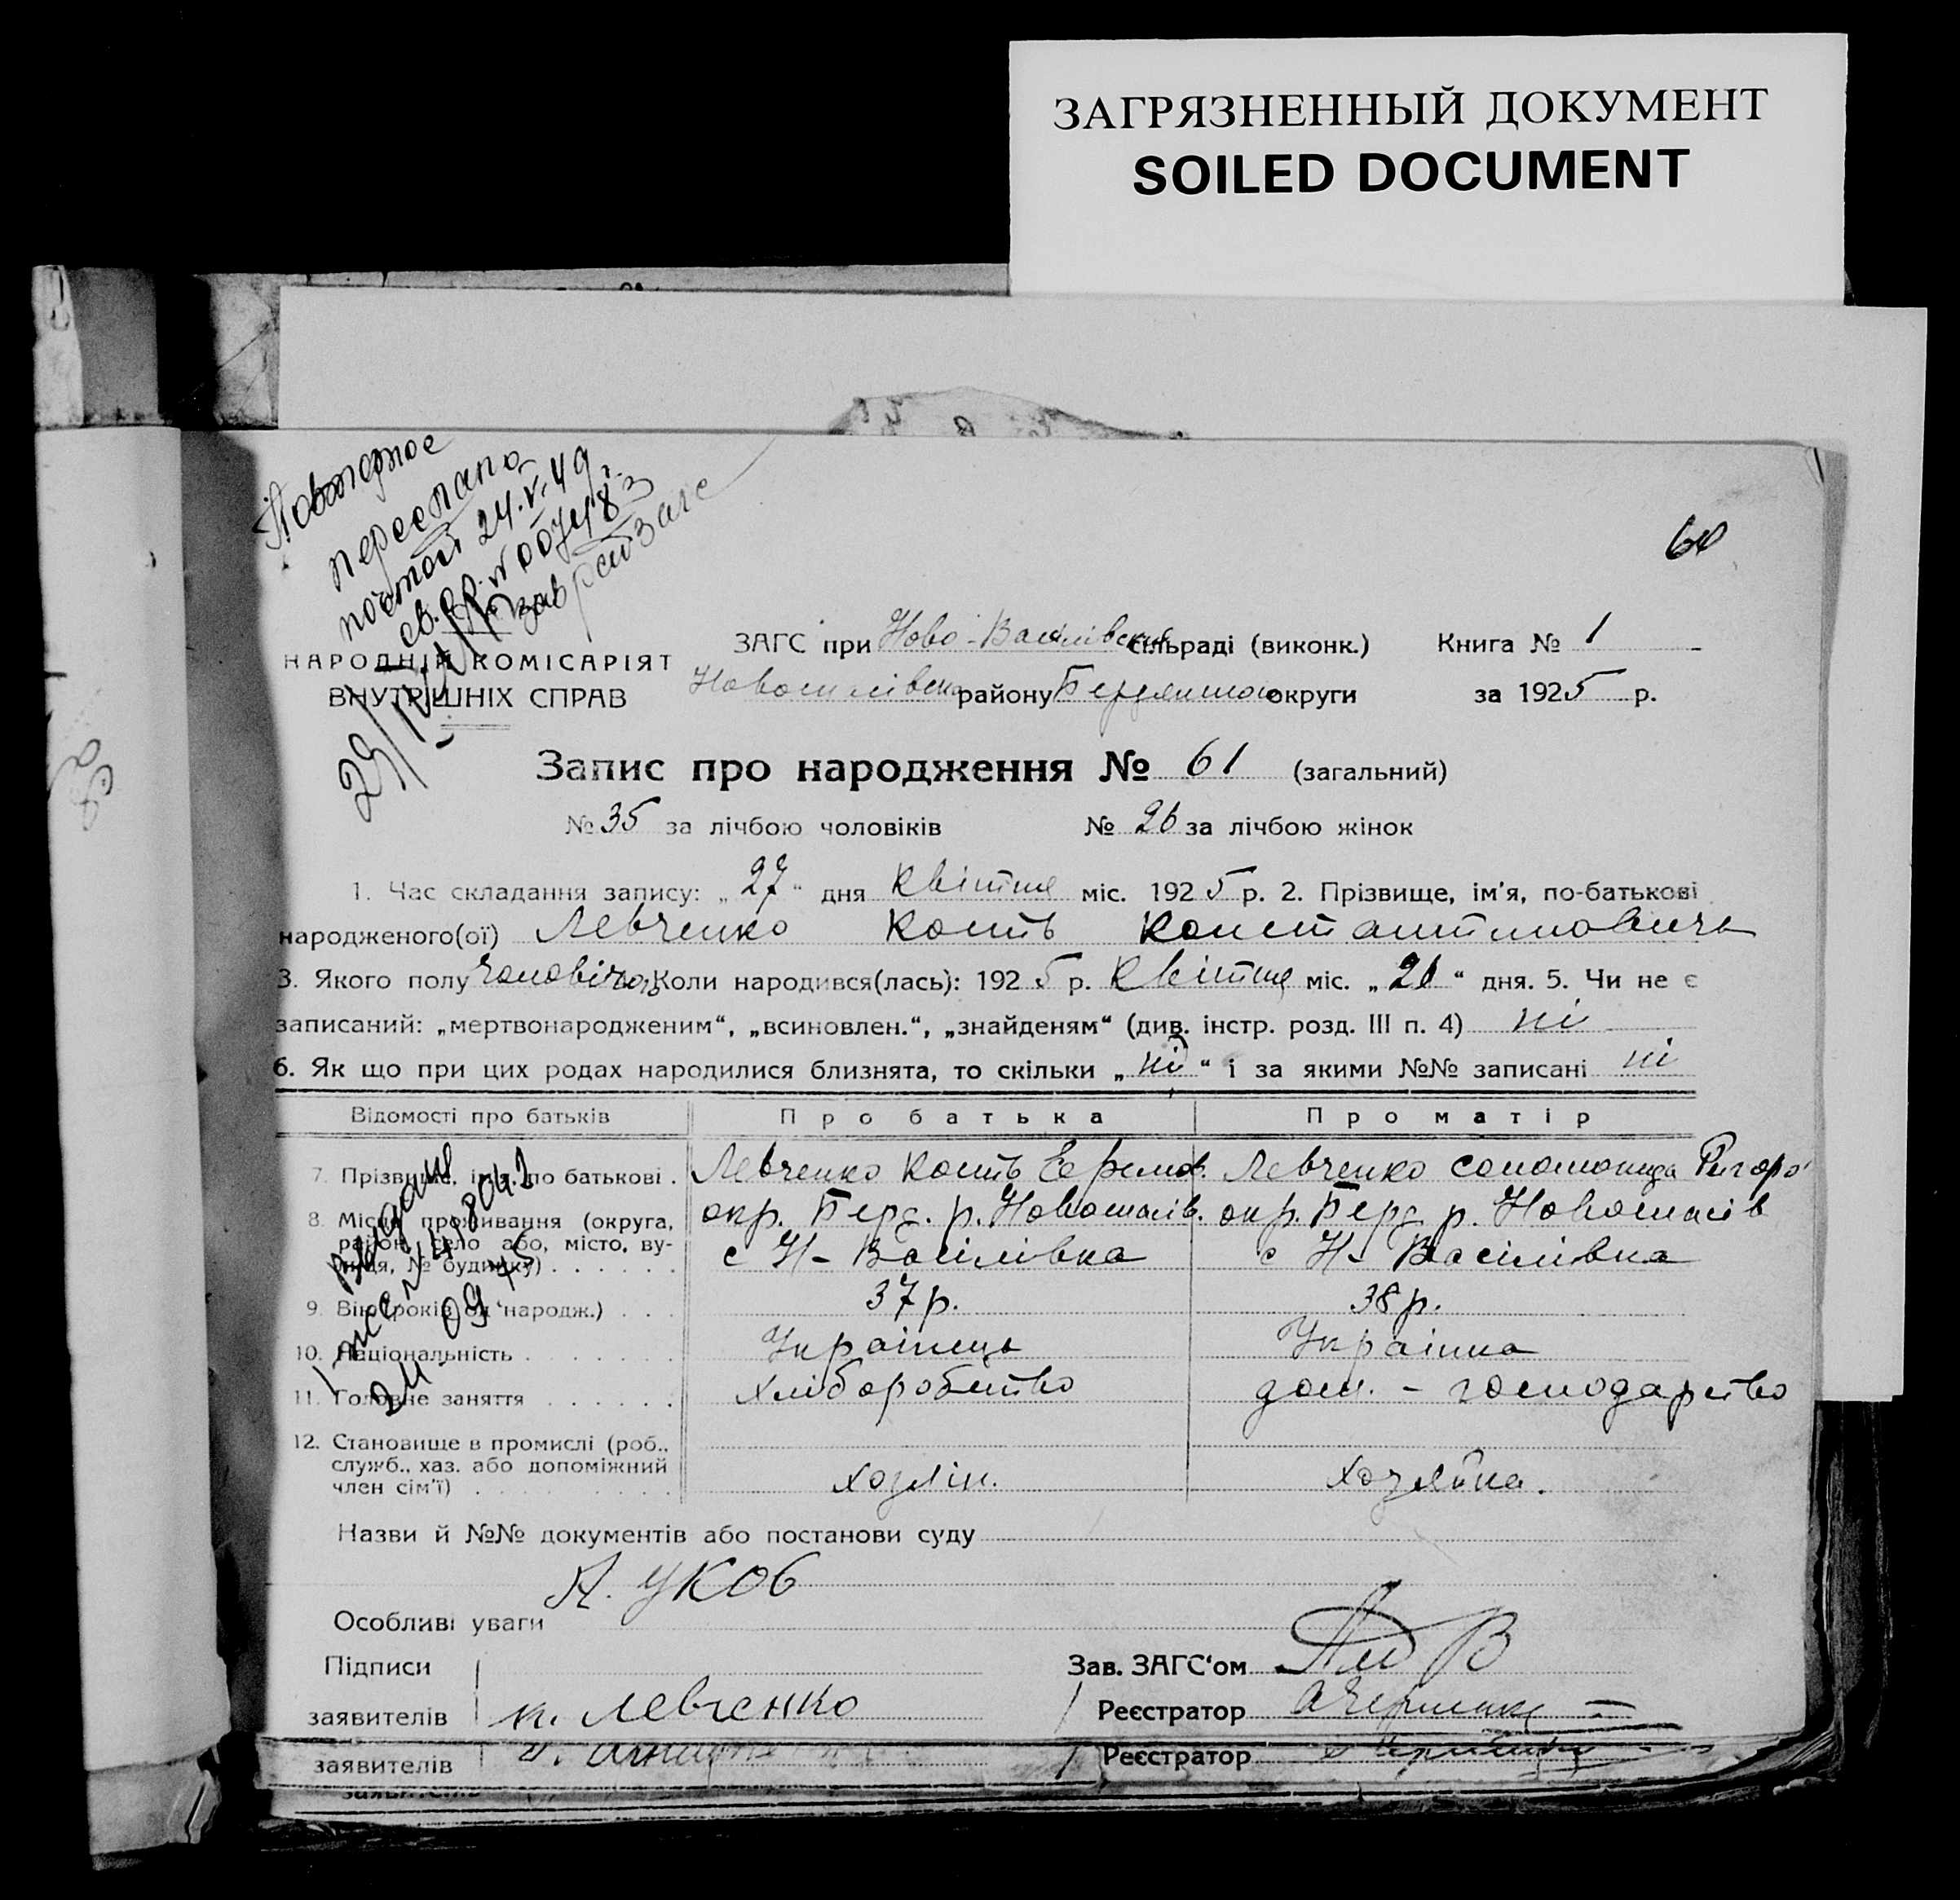 ЗАГРЯЗНЕННЫЙ ДОКУМЕНТ
SOILED DOCUMENT
Повторное
переслано
почтой 24.V.49г.
св. ор. № 007483
60
ЗАГС при Ново-Василівська сільраді (виконк.) Книга № 1
НАРОДНІЙ КОМІСАРІЯТ
району округи за 1925 р.
ВНУТРІШНІХ СПРАВ
Запис про народження № 61 (загальний)
№ 35 за лічбою чоловіків № 26 за лічбою жінок
1. Час складання запису: „27" дня квітня міс. 1925 р. 2. Прізвище, ім'я, по-батькові
народженого(ої) Левченко Кость Константинович
3. Якого полу чоловічо Коли народився(лась): 1925 р. Квітня міс. „26" дня. 5. Чи не є
записаний: „мертвонародженим", „всиновлен.", „знайденям" (див. інстр. розд. III п. 4) ні
6. Як що при цих родах народилися близнята, то скільки „ні" і за якими №№ записані ні
Відомості про батьків Про батька Про матір
7. Прізвище, ім'я, по батькові . Левченко Кость Єфимов. Левченко Соломонида Ригоро
8. Місце проживання (округа, окр. Берд. р. Новоспасів. окр. Берд р. Новоспасів
район, село або, місто, ву-
лиця, № будинку) с Н-Васілівка с Н-Васілівка
9. Вік (років од народж.) 37 р. 38 р.
10. Національність Українець Українка
11. Головне заняття хліборобство дом. - господарство
12. Становище в промислі (роб.,
служб., хаз. або допоміжний
член сім'ї) хозяін. хозяйка.
Видано
24 09 45
Назви й №№ документів або постанови суду
Особливі уваги
Підписи Зав. ЗАГС'ом
заявителів К. Левченко Реєстратор
заявителів Реєстратор
заявителів